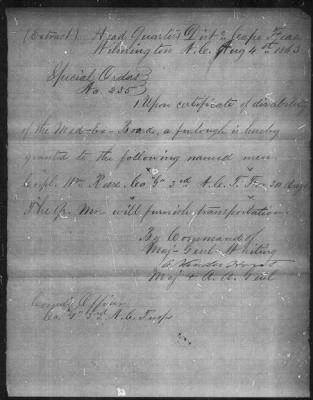 (Extract) Head Quarters Dist Cape Fear
Wilmington N.C. Aug 4th 1863
Special Orders
No. 235
1. Upon certificate of disability
of the Med. Ex. Board, a furlough is hereby
granted to the following named men
Corpl. Wm Co "G" 2nd N.C. T. For 30 days
The Qr. Mr. will furnish transportation.
By Command of
Maj. Genl. Whiting
Maj & A. A. Genl
Comdg Officer
Co. "G" 2nd N.C. Trops